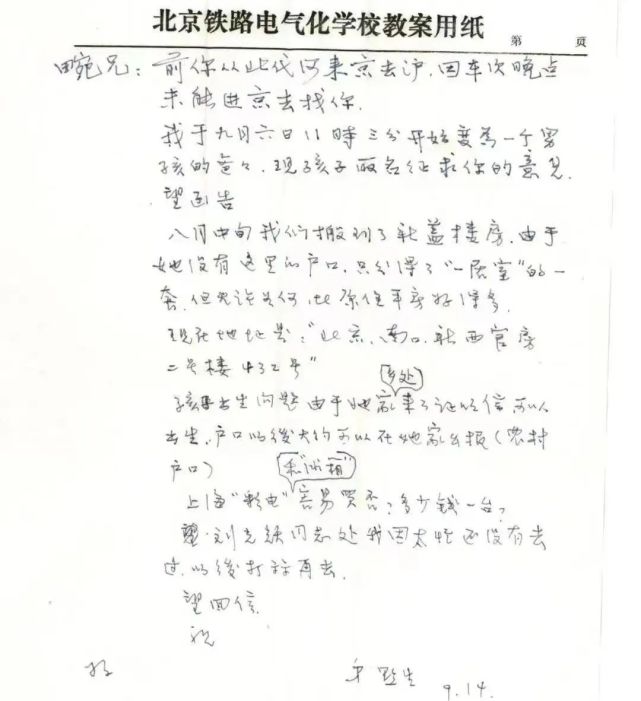 北京铁路电气化学校教案用纸
第 页
田宛兄：前你从北代河来京去沪，因车次晚点
未能进京去找你。
我于九月六日11時三分开始变为一个男
孩的爸々，现孩子取名征求你的意见，
望函告
八月中旬我们搬到了新盖楼房，由于
她没有这里的户口，只分得了“一居室”的一
套，但无论为何，比原住平房好得多。
现在地址是：“北京，南口，新西官房
二号楼432号”
（乡处）
孩子出生问题由于她家来了证明信可以
出生，户口以後大约可以在她家乡报（农村
户口）
和“冰箱”
上海“彩电”容易买否？多少钱一台？
同志处我因太忙还没有去
过，以後打算再去。
望回信
祝
好
9.14.